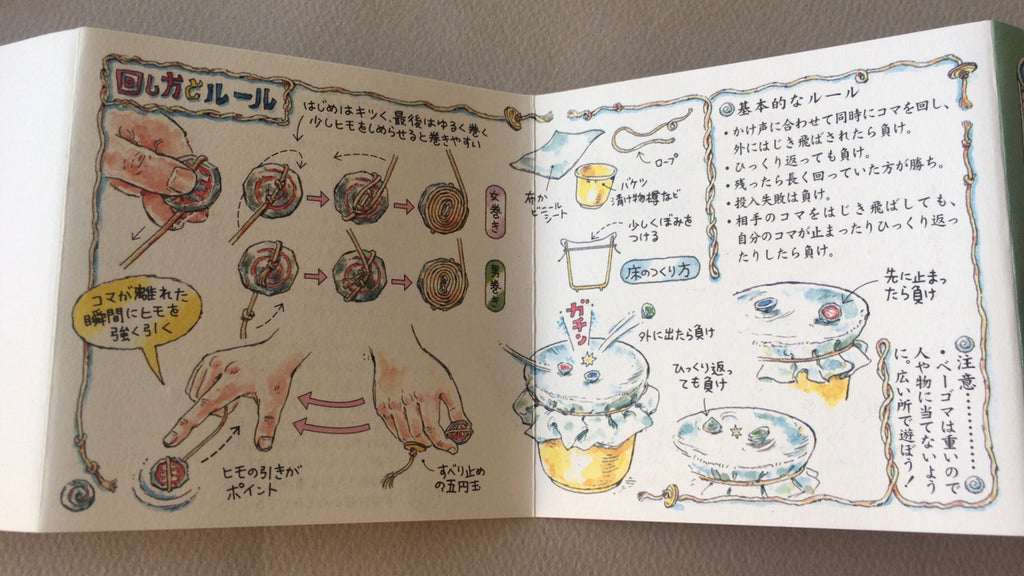 回し方とルール
はじめはキツく、最後はゆるく巻く
少しヒモをしめらせると巻きやすい
女巻き
男巻き
コマが離れた
瞬間にヒモを
強く引く
ヒモの引きが
ポイント
すべり止め
の五円玉
布か
ビニール
シート
ロープ
バケツ
漬け物樽など
少しくぼみを
つける
床のつくり方
ガチン
外に出たら負け
ひっくり返っ
ても負け
先に止まっ
たら負け
基本的なルール
・かけ声に合わせて同時にコマを回し、
外にはじき飛ばされたら負け。
・ひっくり返っても負け。
・残ったら長く回っていた方が勝ち。
・投入失敗は負け。
・相手のコマをはじき飛ばしても、
自分のコマが止まったりひっくり返っ
たりしたら負け。
注意
・ベーゴマは重いので
人や物に当てないよう
に。広い所で遊ぼう!